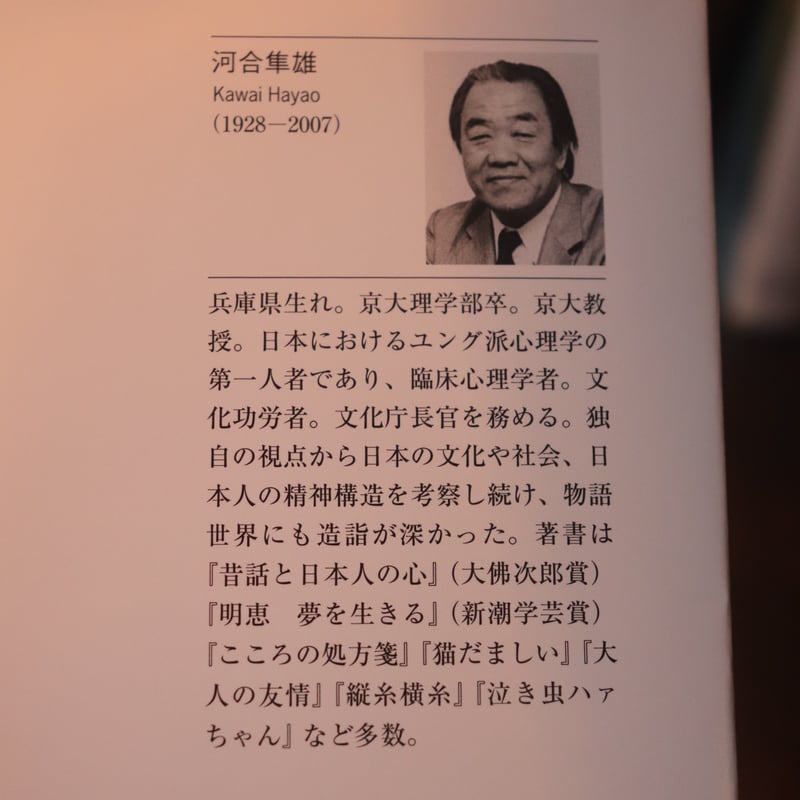 河合隼雄
Kawai Hayao
（1928－2007）
兵庫県生れ。京大理学部卒。京大教
授。日本におけるユング派心理学の
第一人者であり、臨床心理学者。文
化功労者。文化庁長官を務める。独
自の視点から日本の文化や社会、日
本人の精神構造を考察し続け、物語
世界にも造詣が深かった。著書は
『昔話と日本人の心』（大佛次郎賞）
『明恵　夢を生きる』（新潮学芸賞）
『こころの処方箋』『猫だましい』『大
人の友情』『縦糸横糸』『泣き虫ハァ
ちゃん』など多数。